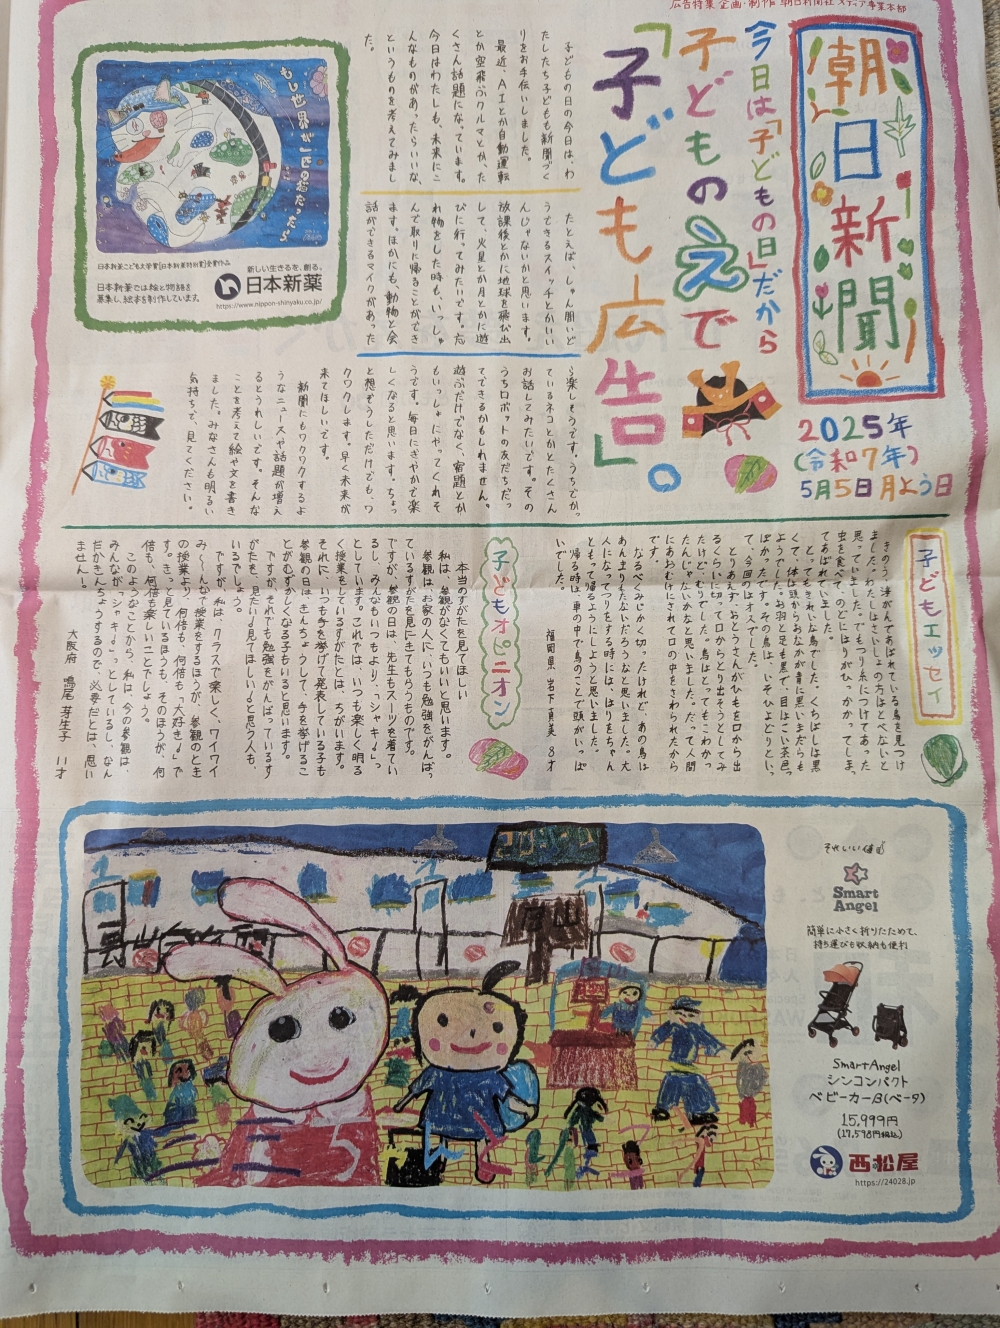 広告特集 企画・制作 朝日新聞社メディア事業本部
朝日新聞
2025年
(令和7年)
5月5日月よう日
今日は「子どもの日」だから
子どものえで
「子ども広告」。
子どもの日の今日は、わ
たしたち子どもも新聞づく
りをお手伝いしました。
最近、AIとか自動運転
とか空飛ぶクルマとか、た
くさん話題になっています。
今日はわたしも、未来にこ
んなものがあったらいいな、
というものを考えてみまし
た。
たとえば、しゃん間いど
うできるスイッチとかいい
んじゃないかと思います。
放課後とかに地球を飛び出
して、火星とか月とかに遊
びに行ってみたいです。忘
れ物をした時も、いっしゅ
んで取りに帰ることができ
ます。ほかにも、動物と会
話ができるマイクがあった
ら楽しそうです。うちでか
っているネコとかとたくさん
お話してみたいです。その
うちロボットの友だちだっ
てできるかもしれません。
遊ぶだけでなく、宿題とか
もいっしょにやってくれそ
うです。毎日にぎやかで楽
しくなると思います。ちょっ
と想ぞうしただけでも、ワ
クワクします。早く未来が
来てほしいです。
新聞にもワクワクするよ
うなニュースや話題が増え
るとうれしいです。そんな
ことを考えて絵や文を書き
ました。みなさんも明るい
気持ちで、見てください。
もし世界が一匹の猫だったら
日本新薬こども文学賞(日本新薬特別賞)受賞作品
日本新薬では絵と物語を
募集し、絵本を制作しています。
新しい生きるを、創る。
日本新薬
https://www.nippon-shinyaku.co.jp/
子どもエッセイ
きのう、津がんであばれている鳥を見つけ
ました。わたしはさいしょの方はとべないと
思っていました。でもつり糸につけてあった
虫を食べて、のどにはりがひっかかってしま
てあばれていました。
とってもきれいな鳥でした。くちばしは黒
くて、体は頭からおなかが青に黒いまだらも
ようでした。お羽と足も黒で、目はこい茶色っ
ぽかったです。その鳥は、いそひよどりといっ
て、今回のはオスでした。
とりあえず、おとうさんがひもを口から出
るくらいに切って口からとり出そうとしてみ
たけど、むりでした。鳥はとってもこわかっ
たんじゃないかなと思いました。だって人間
にあおむけにされて口の中をさわられたから
です。
なるべくみじかく切ったけれど、あの鳥は
あんまりもたないだろうなと思いました。大
人になってつりをする時には、はりをちゃん
ともって帰るようにしようと思いました。
帰る時は、車の中で鳥のことで頭がいっぱ
いでした。
福岡県 岩下真美 8才
子どもオピニオン
本当のすがたを見てほしい
私は、参観がなくてもいいと思います。
参観はお家の人に、いつも勉強をがんばっ
ているすがたを見にきてもらうものです。
ですが、参観の日は、先生もスーツを着てい
るし、みんなもいつもより、「シャキ♩」っ
としています。これでは、いつも楽しく明る
く授業をしているすがたとは、ちがいます。
それに、いつも手を挙げて発表している子も
参観の日は、きんちょうして、手を挙げるこ
とがむずかしくなる子もいると思います。
ですが、それでも勉強をがんばっているす
がたを、見たい♩見てほしい♩と思う人も、
いるでしょう。
ですが、私は、クラスで楽しく、ワイワイ
み〜んなで授業をするほうが、参観のとき
の授業より、何倍も、何倍も、大好き♩で
す。きっと見ているほうも、そのほうが、何
倍も、何倍も楽しいことでしょう。
このようなことから、私は、今の参観は、
みんなが、「シャキ♩」っとしているし、なん
だかきんちょうするので、必要だとは、思い
ません!
大阪府 鳴尾芽生子 11才
それいい値！
Smart
Angel
簡単に小さく折りたためて、
持ち運びも収納も便利
SmartAngel
シンコンパクト
ベビーカーβ(ベータ)
15,999円
(17,598円税込)
西松屋
https://24028.jp